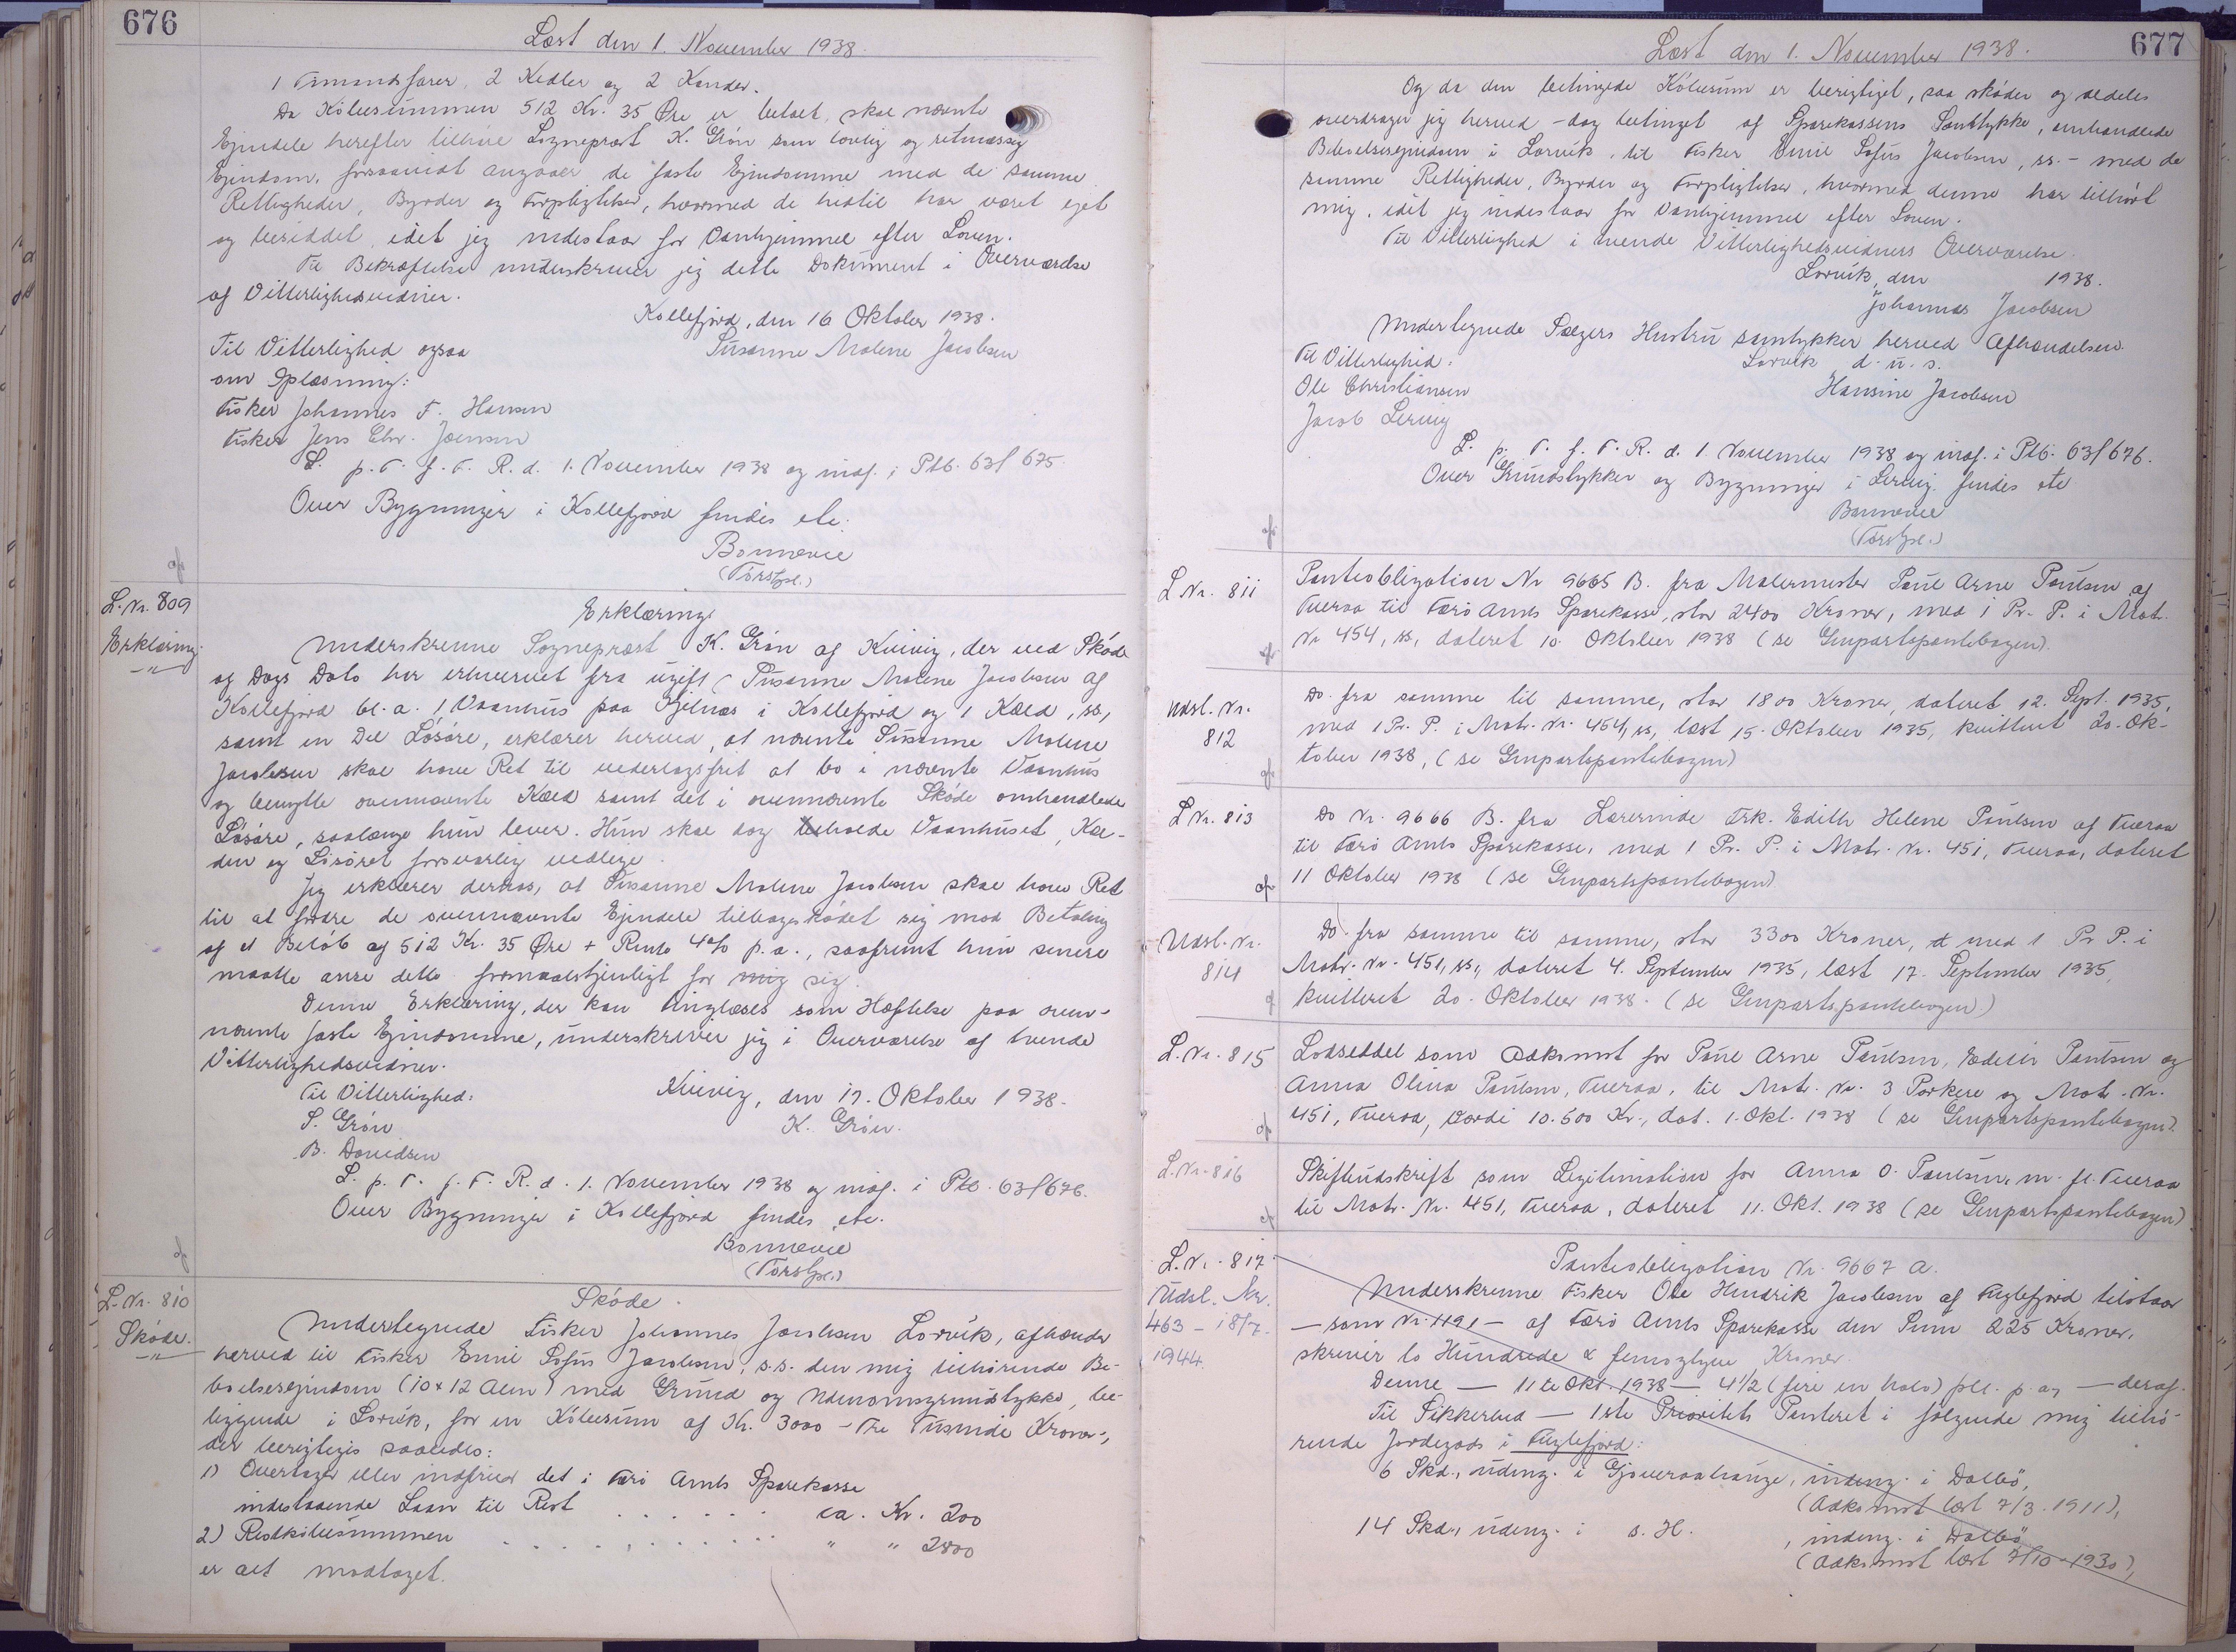 676
Læst den 1. November 1938.
1 Primusfarer, 2 Kedler og 2 Kander.
Da Købesummen 512 Kr. 35 Øre er betalt, skal nævnte
Ejendele herefter tilhøre Sognepræst K. Grøn som lovlig og retmæssig
Ejendom, forsaavidt angaaer de faste Ejendomme med de samme
Rettigheder, Byrder og Forpligtelser, hvormed de hidtil har været ejet
og besiddet, idet jeg indestaar for Vanhjemmel efter Loven.
Til Bekræftelse underskriver jeg dette Dokument i Overværelse
af Vitterlighedsvidner.
Kollefjord, den 16 Oktober 1938.
Til Vitterlighed ogsaa
Susanne Malene Jacobsen
om Oplæsning:
Fisker Johannes F. Hansen
Fisker Jens Chr. Joensen
L. p. T. f. F. R. d. 1. November 1938 og indf. i Ptb. 63f 675.
Over Bygninger i Kollefjord findes etc.
Bonnevie
(Førstfm.)
L. Nr. 809
Erklæring
Erklæring.
Underskrevne Sognepræst K. Grøn af Kvivig, der ved Skøde
af Dags Dato har erhvervet fra ugift Susanne Malene Jacobsen af
Kollefjord bl. a. 1 Vaanhus paa Kjelnæs i Kollefjord og 1 Kæld, ss,
samt en Del Løsøre, erklærer herved, at nævnte Susanne Malene
Jacobsen skal have Ret til vederlagsfrit at bo i nævnte Vaanhus
og benytte ovennævnte Kæld samt det i ovennævnte Skøde omhandlede
Løsøre, saalænge hun lever. Hun skal dog beholde Vaanhuset, Kæl-
den og Løsøret forsvarlig vedlige.
Jeg erklærer derhos, at Susanne Malene Jacobsen skal have Ret
til at fordre de ovennævnte Ejendele tilbageskødet sig mod Betaling
af et Beløb af 512 Kr. 35 Øre + Rente 4% p.a., saafremt hun senere
maatte anse dette formaalstjenligt for mig sig.
Denne Erklæring, der kan tinglæses som Hæftelse paa oven-
nævnte faste Ejendomme, underskriver jeg i Overværelse af tvende
Vitterlighedsvidner.
Til Vitterlighed:
Kvivig, den 17. Oktober 1938.
S. Grøn
K. Grøn.
B. Davidsen
L. p. T. f. F. R. d. 1. November 1938 og indf. i Ptb. 63f 676.
Over Bygninger i Kollefjord findes etc.
Bonnevie
(Førstfm.)
L. Nr. 810
Skøde.
Skøde.
Undertegnede Fisker Johannes Jacobsen Lorvik, afhænder
herved til Fisker Emil Sofus Jacobsen, s.s. den mig tilhørende Be-
boelsesejendom (10 x 12 Alen) med Grund og Udenomsgrundstykke, be-
liggende i Lorvik, for en Købesum af Kr. 3000 - Tre Tusinde Kroner -,
der berigtiges saaledes:
1) Overtager eller indfrier det i Færø Amts Sparekasse
indestaaende Laan til Rest . . . . . ca. Kr. 200
2) Restkøbesummen . . . . . . . " " 2800
er alt modtaget.
677
Læst den 1. November 1938.
Og da den betingede Købesum er berigtiget, saa skøder og aldeles
overdrager jeg herved - dog betinget af Sparekassens Samtykke, omhandlede
Beboelsesejendom i Lorvik, til Fisker Emil Sofus Jacobsen, ss. - med de
samme Rettigheder, Byrder og Forpligtelser, hvormed denne har tilhørt
mig, idet jeg indestaar for Vanhjemmel efter Loven.
Til Vitterlighed i tvende Vitterlighedsvidners Overværelse.
Lorvik, den 1938.
Johannes Jacobsen
Undertegnede Sælgers Hustru samtykker herved Afhændelsen.
Til Vitterlighed:
Lorvik d. u. s.
Ole Christiansen
Hansine Jacobsen
Jacob Lervig
L. p. T. f. F. R. d. 1. November 1938 og indf. i Ptb. 63f 676.
Over Grundstykker og Bygninger i Lervig findes etc
Bonnevie
(Førstfm.)
L Nr. 811
Panteobligation Nr 9665 B. fra Malermester Poul Arne Poulsen af
Tveraa til Færø Amts Sparekasse, stor 2400 Kroner, med 1 Pr. P. i Matr.
Nr 454, ss, dateret 10. Oktober 1938 (se Genpartspantebogen).
Udsl. Nr. 812
Do. fra samme til samme, stor 1800 Kroner, dateret 12. Sept. 1935,
med 1 Pr. P. i Matr. Nr. 454, ss, læst 15. Oktober 1935, kvitteret 20. Ok-
tober 1938, (se Genpartspantebogen)
L Nr. 813
Do Nr. 9666 B. fra Lærerinde Frk. Edith Helene Poulsen af Tveraa
til Færø Amts Sparekasse, med 1 Pr. P. i Matr. Nr. 451, Tveraa, dateret
11 Oktober 1938 (se Genpartspantebogen)
Udsl. Nr. 814
Do fra samme til samme, stor 3300 Kroner, med 1 Pr P. i
Matr. Nr. 451, ss, dateret 4. September 1935, læst 17. September 1935,
kvitteret 20. Oktober 1938. (se Genpartspantebogen)
L. Nr. 815
Lodseddel som Adkomst for Poul Arne Poulsen, Edith Poulsen og
Anna Olivia Poulsen, Tveraa, til Matr. Nr. 3 Porkere og Matr. Nr.
451, Tveraa, Værdi 10.500 Kr., dat. 1. Okt. 1938 (se Genpartspantebogen).
L. Nr. 816
Skifteudskrift som Legitimation for Anna O. Poulsen, m. fl. Tveraa
til Matr. Nr. 451, Tveraa, dateret 11. Okt. 1938 (se Genpartspantebogen)
L. Nr. 817
Udsl. Nr.
463 - 18/7.
1944.
Panteobligation Nr. 9667 A.
Underskrevne Fisker Ole Hendrik Jacobsen af Fuglefjord tilstaar
- som Nr. 1191 - af Færø Amts Sparekasse den Sum 225 Kroner,
skriver to Hundrede & femogtyve Kroner.
Denne - 11te Okt. 1938 - 4 1/2 (fire en halv) pCt. p. a, - deraf.
Til Sikkerhed - 1ste Prioritets Panteret i følgende mig tilhø-
rende Jordegods i Fuglefjord:
6 Skd., udeng. i Gjoveraahauge, indeng. i Dalbø,
(Adkomst læst 7/3. 1911),
14 Skd., udeng. i s. H. , indeng. i Dalbø
(Adkomst læst 7/10 - 1930),